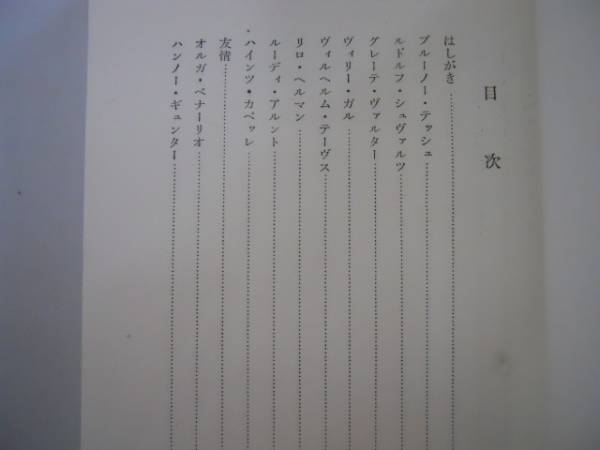 目次
はしがき
ブルーノー・テッシュ
ルドルフ・シュヴァルツ
グレーテ・ヴァルター
ヴィリー・ガル
ヴィルヘルム・テーヴス
リロ・ヘルマン
ルーディ・アルント
ハインツ・カペッレ
友情
オルガ・ベナーリオ
ハンノー・ギュンター